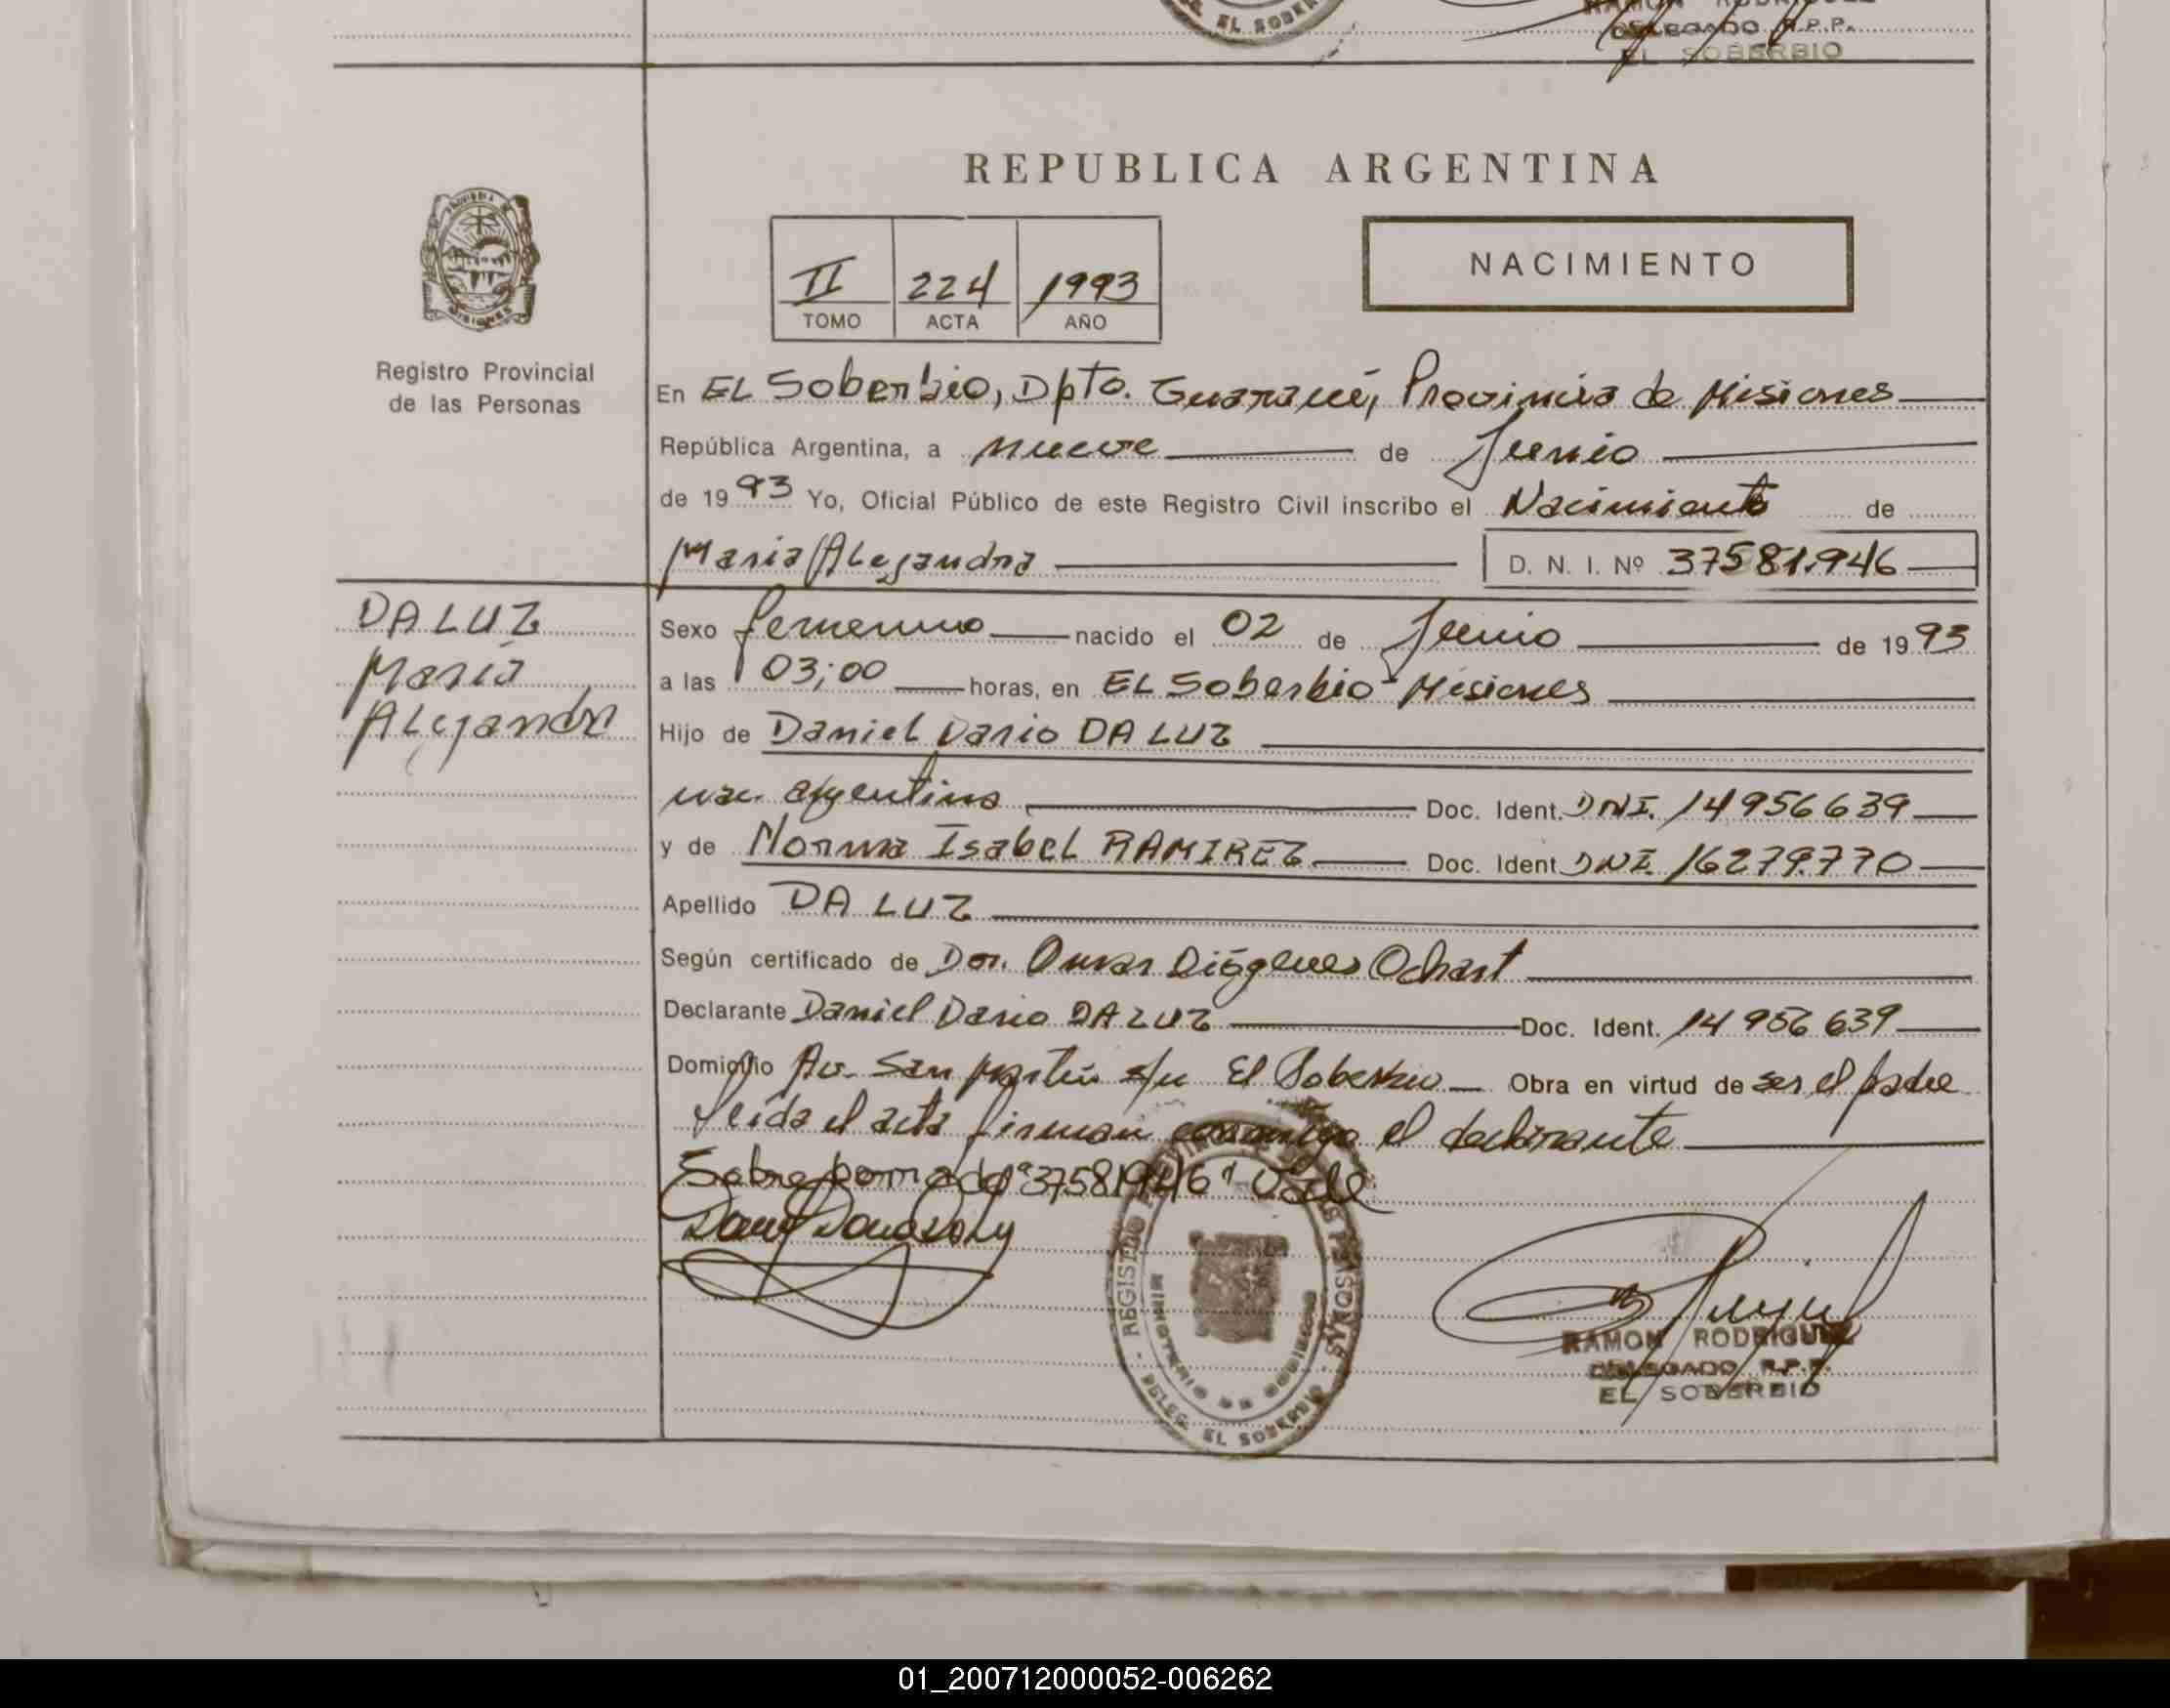 EL SOBER
RAMON RODRIGUEZ
DELEGADO R.P.P.
EL SOBERBIO
REPUBLICA ARGENTINA
NACIMIENTO
II 224 1993
TOMO ACTA AÑO
Registro Provincial
de las Personas
En EL Soberbio, Dpto. Guaraní, Provincia de Misiones
República Argentina, a nueve de Junio
de 1993 Yo, Oficial Público de este Registro Civil inscribo el Nacimiento de
Maria Alejandra D. N. I. Nº 37581.946
DA LUZ
María
Alejandra
Sexo femenino nacido el 02 de Junio de 1993
a las 03;00 horas, en EL Soberbio - Misiones
Hijo de Daniel Dario DA LUZ
nac. argentina Doc. Ident. DNI. 14956639
y de Norma Isabel RAMIREZ Doc. Ident. DNI. 16279.770
Apellido DA LUZ
Según certificado de Dor. Omar Diógenes Ochart
Declarante Daniel Dario DA LUZ Doc. Ident. 14956639
Domicilio Av. San Martín s/n El Soberbio Obra en virtud de ser el padre
leída el acta firman conmigo el declarante
Sobreborrado "37581946" Vale
REGISTRO PROVINCIAL DE LAS PERSONAS
MINISTERIO DE GOBIERNO
DELEG. EL SOBERBIO
RAMON RODRIGUEZ
DELEGADO R.P.P.
EL SOBERBIO
01_200712000052-006262